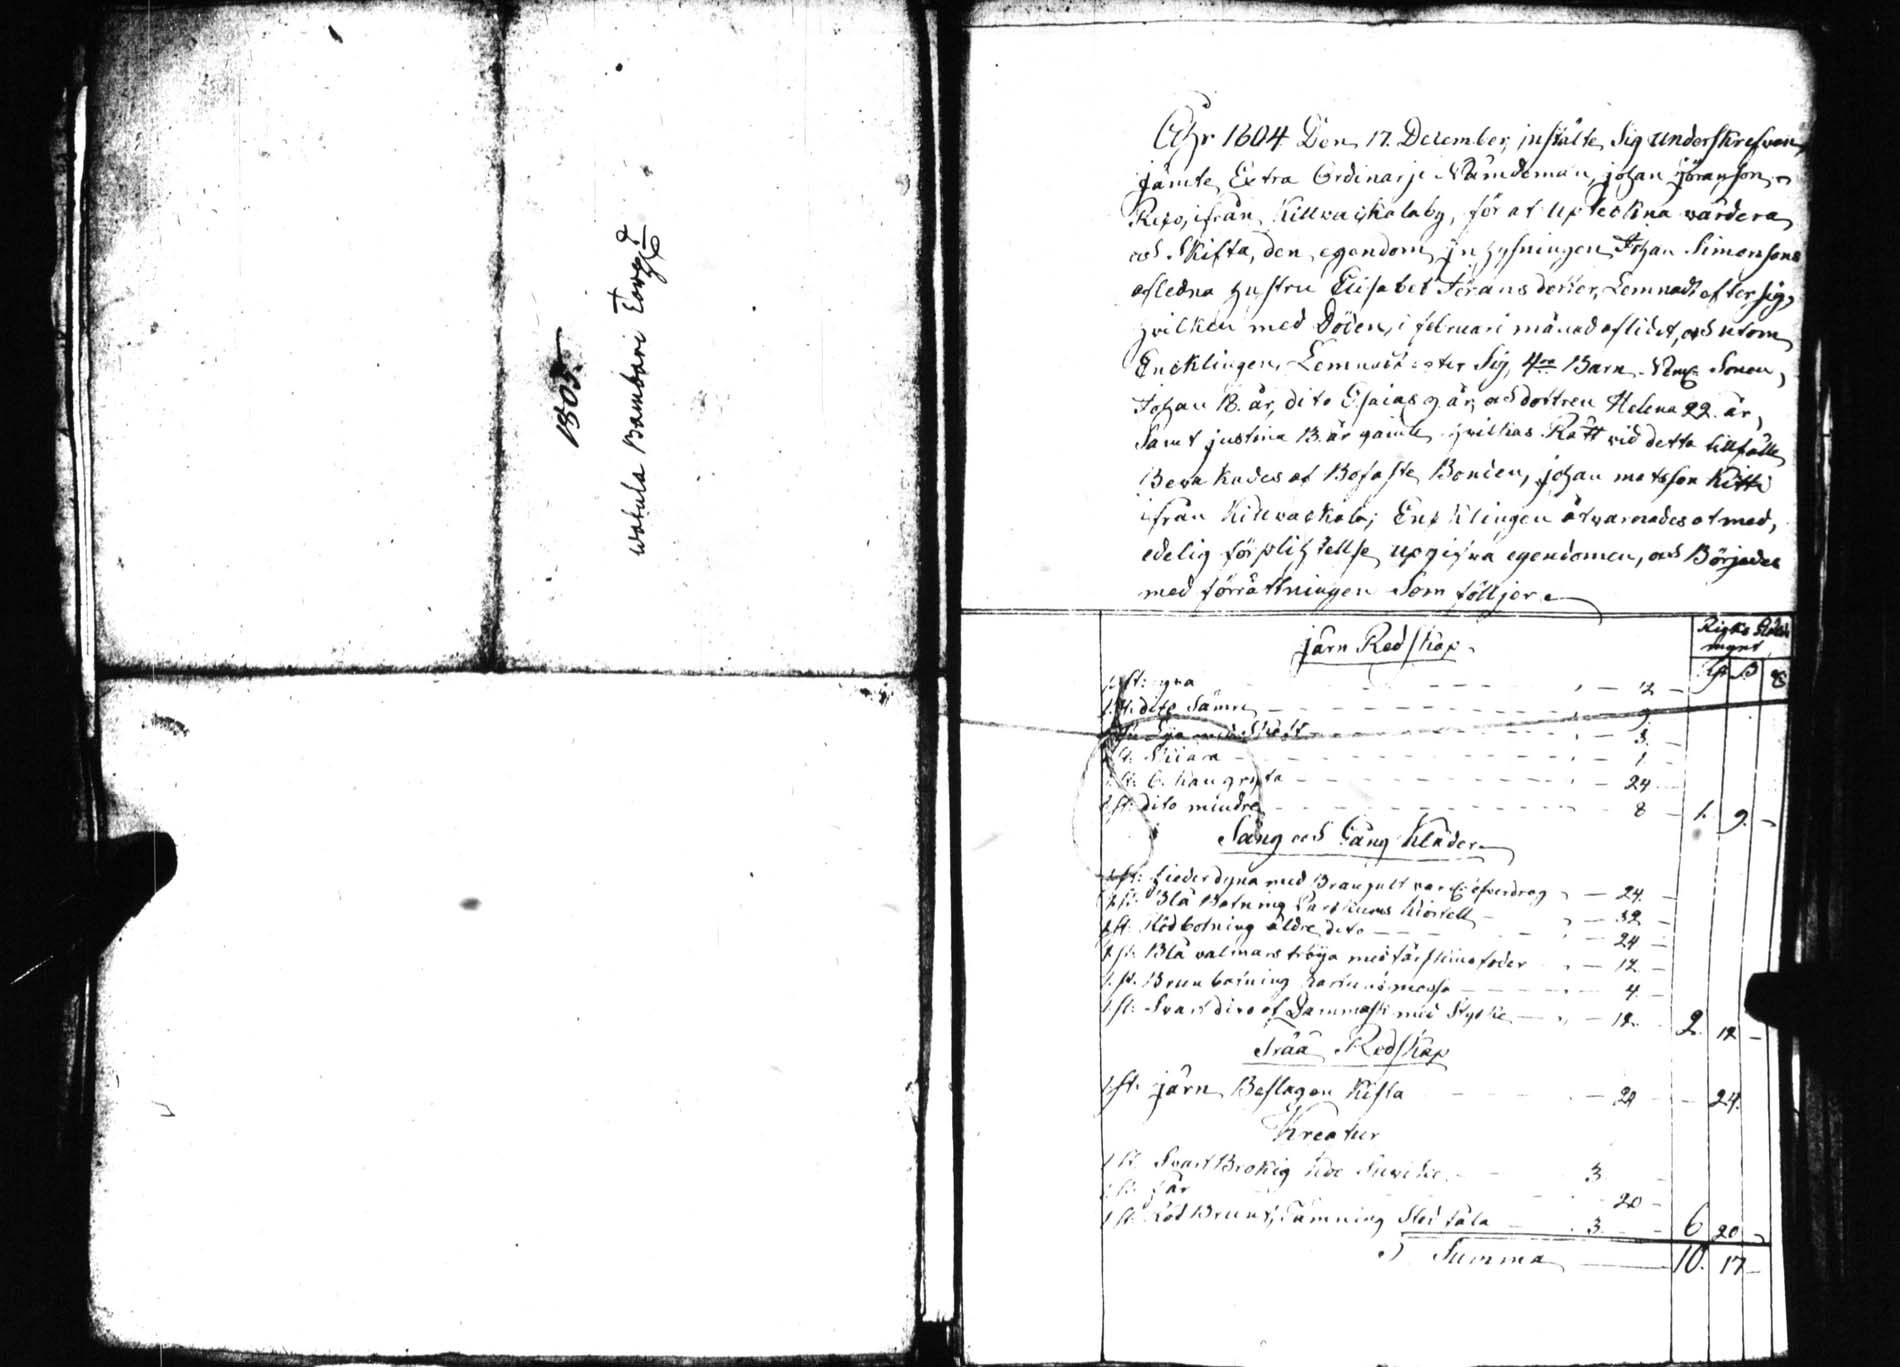 1805
Wotula Bambari Torp
Åhr 1804 Den 17. December, instälte Sig underskrefven,
jämte Extra Ordinarje Nämdeman, johan Jöranson
Repo, ifrån Killwaskalaby, för at upteckna värdera
och Skifta, den egendom, inhysningen Johan Simonsons
afledna hustru Elisabet Jöransdotter, Lemnadt efter sig,
hvilken med Döden, i februari månad aflidit, och utom
Encklingen, Lemnadt efter Sig, 4ra Barn Neml. Sonen,
Johan 18. år, dito Esaias 9 år, och dottren Helena 22. år,
Samt justina 13. år gamla hvilkas Rätt vid detta tillfälle
Bevakades af Bofaste Bonden, johan matsson Kitti
ifrån Killwaskala; Encklingen åtvarnades at med,
edelig förplihtellse upgifva egendomen, och Börjades
med förrättningen Som följer
järn Redskap
Rigks
mynt
1. st: yxa 12
1. st: dito Sämre 9
3
1. st. Skiära 1
1. st: 6. kan gryta 24
1. st: dito mindre 8 1. 9.
Säng och Gång Kläder
1. st: fieder dyna med öfverdrag 24
1. st: Blå Botning Kiortell 32
1. st: Röd botning äldre dito 24
1. st: Blå valmars tröja med fårskins foder 12
1. st. Brun botning mössa 4
1. st: Svart dito af Dammask med Stycke 12 2. 12
Trää Redskap
1. st. järn Beslagen Kista 24 24.
Kreatur
1. st. Svart Brokig 3
1. st. får 20
1. st. Röd Brunt, 3 6 20
Summa 10. 17